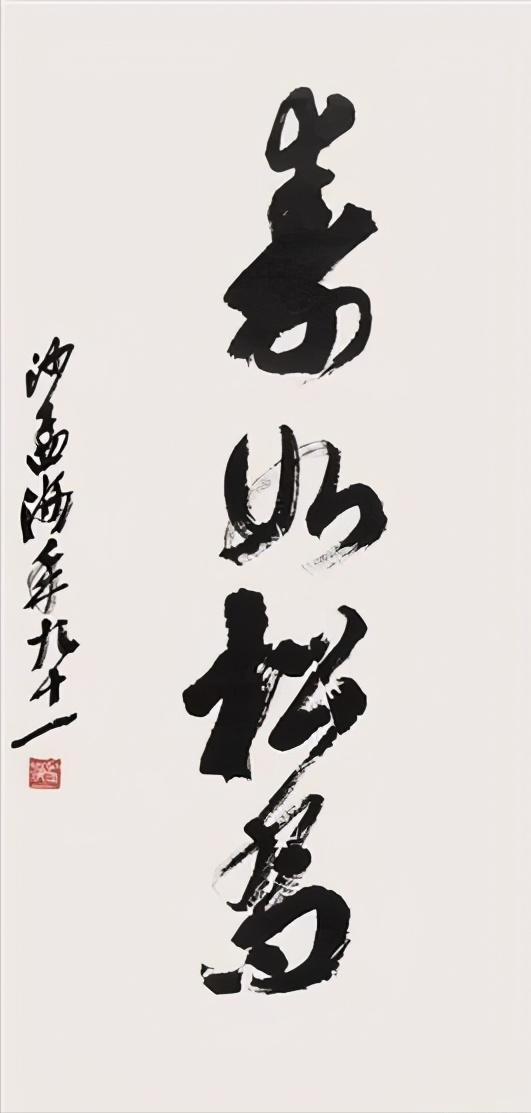 壽如松喬
沙孟海年九十一